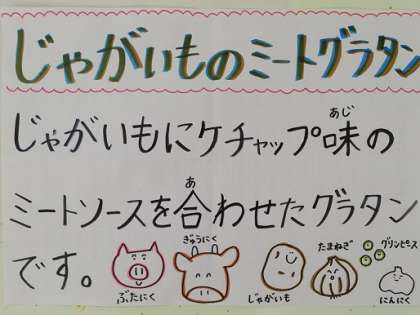 じゃがいものミートグラタン
じゃがいもにケチャップ味の
あじ
ミートソースを合わせたグラタン
あ
です。
ぶたにく
ぎゅうにく
じゃがいも
たまねぎ
グリンピース
にんにく